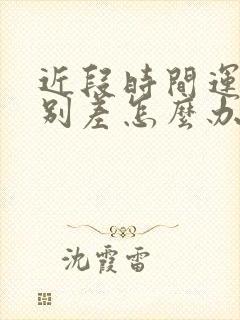 近段時間運
別差怎麼办
沈霞雷